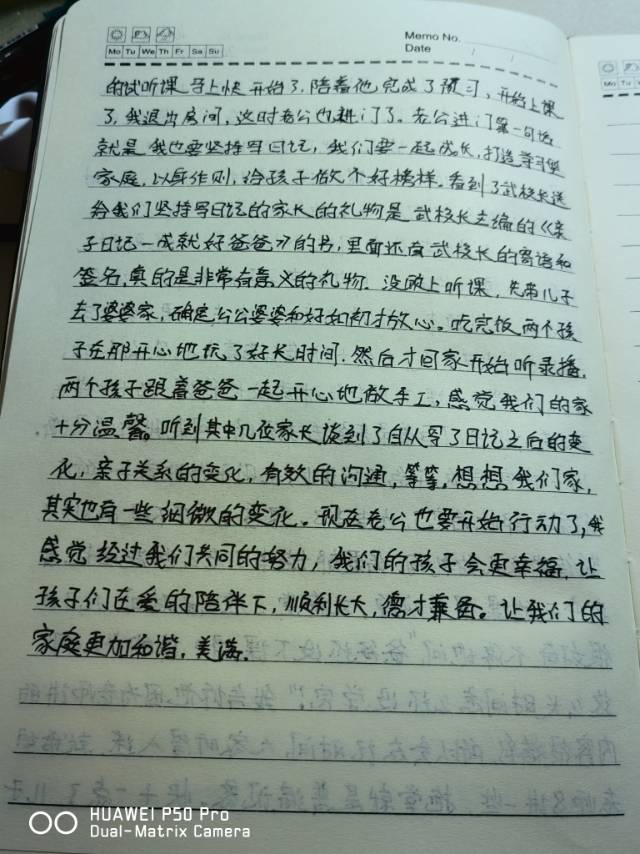 Memo No.
Date / /
Mo Tu We Th Fr Sa Su
的试听课马上快开始了,陪着他完成了预习,开始上课
了,我退出房间,这时老公也进门了。老公进门第一句话
就是我也要坚持写日记,我们要一起成长,打造学习型
家庭,以身作则,给孩子做个好榜样。看到了武校长送
给我们坚持写日记的家长的礼物是武校长主编的《亲
子日记一成就好爸爸》的书,里面还有武校长的寄语和
签名,真的是非常有意义的礼物。没顾上听课,先带儿子
去了婆婆家,确定公公婆婆和好如初才放心。吃完饭两个孩
子在那开心地玩了好长时间.然后才回家开始听录播.
两个孩子跟着爸爸一起开心地做手工,感觉我们的家
十分温馨。听到其中几位家长谈到了自从写了日记之后的变
化,亲子关系的变化,有效的沟通,等等,想想我们家,
其实也有一些细微的变化。现在老公也要开始行动了,我
感觉经过我们共同的努力,我们的孩子会更幸福,让
孩子们在爱的陪伴下,顺利长大,德才兼备。让我们的
家庭更加和谐,美满.
Mo Tu
HUAWEI P50 Pro
Dual-Matrix Camera